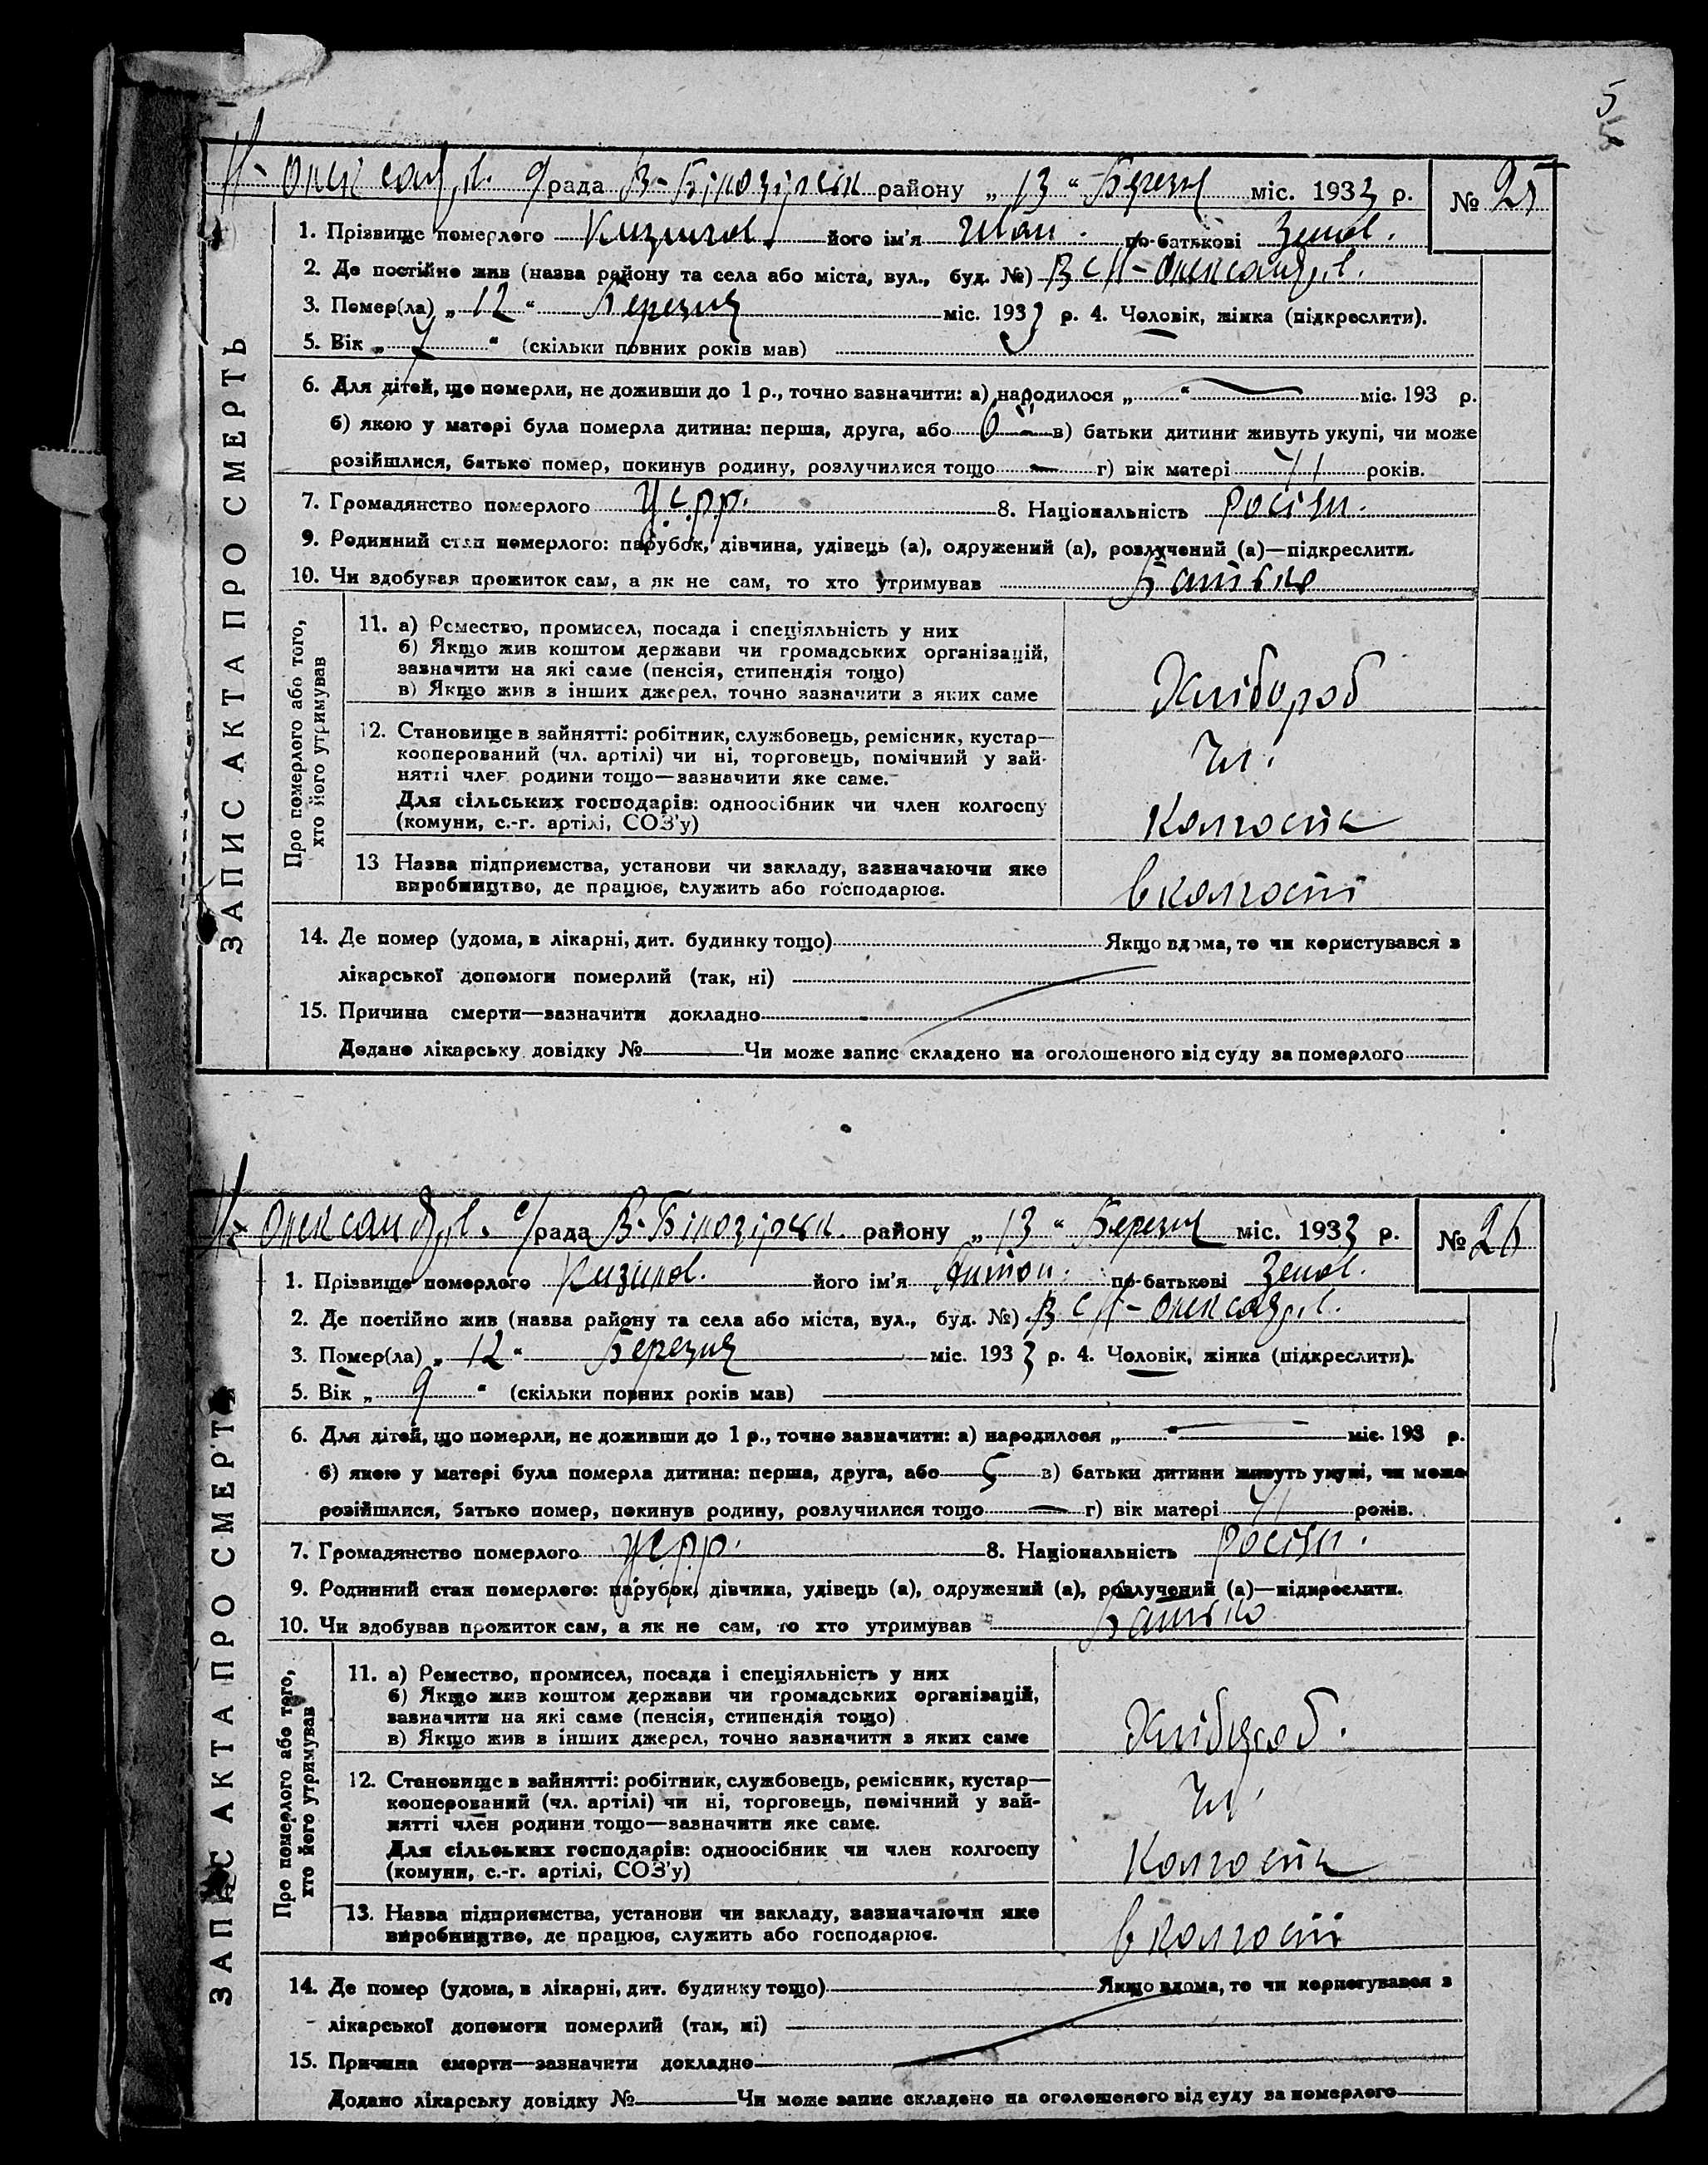 5
5
Н-Олександрів. с/рада В-Білозірськ району „ 13 “ Березня міс. 1933 р. № 25
1. Прізвище померлого його ім'я Іван. по-батькові Зенов.
2. Де постійно жив (назва району та села або міста, вул., буд. №) В с Н-Олександрів.
3. Помер(ла) „ 12 “ Березня міс. 1933 р. 4. Чоловік, жінка (підкреслити).
5. Вік „ 7 “ (скільки повних років мав)
6. Для дітей, що померли, не доживши до 1 р., точно зазначити: а) народилося „ “ міс. 193 р.
б) якою у матері була померла дитина: перша, друга, або 6 в) батьки дитини живуть укупі, чи може
розійшлися, батько помер, покинув родину, розлучилися тощо г) вік матері 41 років.
7. Громадянство померлого У.С.Р.Р. 8. Національність Росіян.
9. Родинний стан померлого: парубок, дівчина, удівець (а), одружений (а), розлучений (а)—підкреслити.
10. Чи здобував прожиток сам, а як не сам, то хто утримував Батько
ЗАПИС АКТА ПРО СМЕРТЬ
Про померлого або того,
хто його утримував
11. а) Ремество, промисел, посада і спеціяльність у них
б) Якщо жив коштом держави чи громадських організацій,
зазначити на які саме (пенсія, стипендія тощо)
в) Якщо жив з інших джерел, точно зазначити з яких саме
Хлібороб
12. Становище в зайнятті: робітник, службовець, ремісник, кустар—
кооперований (чл. артілі) чи ні, торговець, помічний у зай-
нятті член родини тощо—зазначити яке саме.
Для сільських господарів: одноосібник чи член колгоспу
(комуни, с.-г. артілі, СОЗ'у)
Чл.
Колгоспа
13 Назва підприємства, установи чи закладу, зазначаючи яке
виробництво, де працює, служить або господарює.
в колгоспі
14. Де помер (удома, в лікарні, дит. будинку тощо) Якщо вдома, то чи користувався з
лікарської допомоги померлий (так, ні)
15. Причина смерти—зазначити докладно
Додано лікарську довідку № Чи може запис складено на оголошеного від суду за померлого
Н-Олександрів. с/рада В-Білозірськ. району „ 13 “ Березня міс. 1933 р. № 26
1. Прізвище померлого Кизилов. його ім'я Антон. по-батькові Зенов.
2. Де постійно жив (назва району та села або міста, вул., буд. №) В с Н-Олександрів.
3. Помер(ла) „ 12 “ Березня міс. 1933 р. 4. Чоловік, жінка (підкреслити).
5. Вік „ 9 “ (скільки повних років мав)
6. Для дітей, що померли, не доживши до 1 р., точно зазначити: а) народилося „ “ міс. 193 р.
б) якою у матері була померла дитина: перша, друга, або 5 в) батьки дитини живуть укупі, чи може
розійшлися, батько помер, покинув родину, розлучилися тощо г) вік матері 41 років.
7. Громадянство померлого УСРР. 8. Національність Росіян.
9. Родинний стан померлого: парубок, дівчина, удівець (а), одружений (а), розлучений (а)—підкреслити.
10. Чи здобував прожиток сам, а як не сам, то хто утримував Батько
ЗАПИС АКТА ПРО СМЕРТЬ
Про померлого або того,
хто його утримував
11. а) Ремество, промисел, посада і спеціяльність у них
б) Якщо жив коштом держави чи громадських організацій,
зазначити на які саме (пенсія, стипендія тощо)
в) Якщо жив з інших джерел, точно зазначити з яких саме
Хлібороб.
12. Становище в зайнятті: робітник, службовець, ремісник, кустар—
кооперований (чл. артілі) чи ні, торговець, помічний у зай-
нятті член родини тощо—зазначити яке саме.
Для сільських господарів: одноосібник чи член колгоспу
(комуни, с.-г. артілі, СОЗ'у)
Чл.
Колгоспа
13. Назва підприємства, установи чи закладу, зазначаючи яке
виробництво, де працює, служить або господарює.
в колгоспі
14. Де помер (удома, в лікарні, дит. будинку тощо) Якщо вдома, то чи користувався з
лікарської допомоги померлий (так, ні)
15. Причина смерти—зазначити докладно
Додано лікарську довідку № Чи може запис складено на оголошеного від суду за померлого